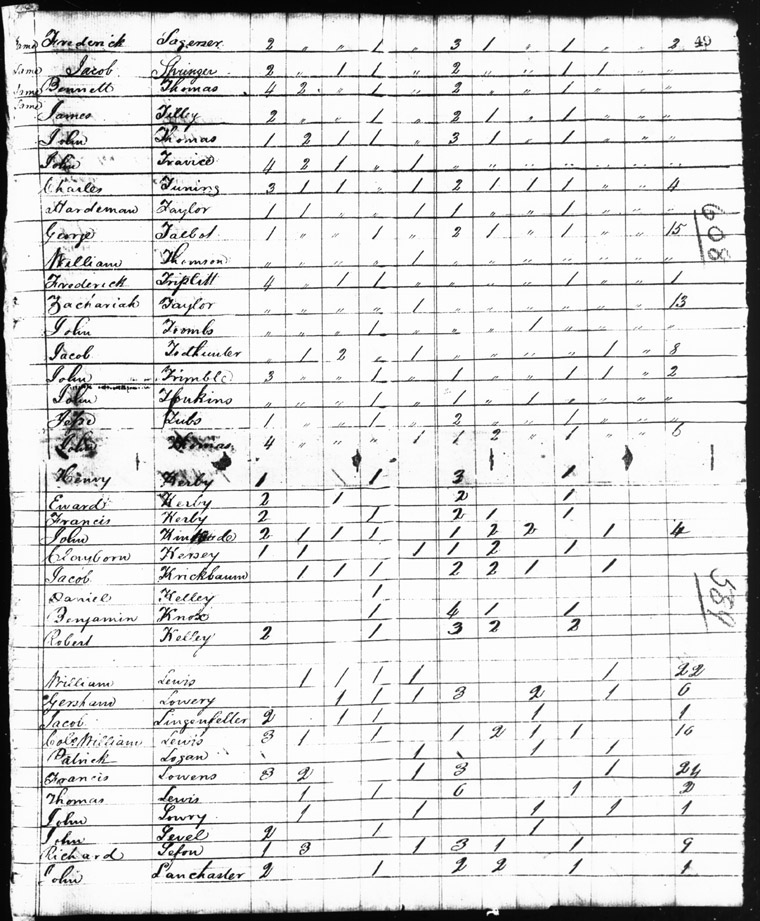 49
Same Frederick Sagerser 2 " " 1 " 3 1 " 1 " " 2
Same Jacob Springer 2 " 1 1 " 2 " " " 1 1 " "
Same Bennett Thomas 4 2 " 1 " 2 " " 1 " " "
Same
James Tilley 2 " " 1 " 2 1 " 1 " " "
John Thomas 1 2 1 1 " 3 1 " 1 " " "
John Travice 4 2 1 " 1 " " " " " " "
Charles Tuning 3 1 1 " 1 2 1 1 1 " " 4
Hardeman Taylor 1 1 " " 1 1 " " 1 " " "
George Talbot 1 " " 1 " 2 1 " 1 " " 15
608
William Thomson " " " " 1 " " " " " " "
Frederick Triplett 4 " 1 1 " " " " 1 " " 1
Zachariah Taylor " " " " 1 " " " " " " 13
John Tombs " " " 1 " " " 1 " " " "
Jacob Todhunter " 1 2 " 1 " " " " 1 " 8
John Trimble 3 " " 1 " 1 " " 1 1 " 2
John " " " 1 " 1 " 1 " " " "
Jesse 1 " " " " 2 " " 1 " " "
John Thomas 4 " " " 1 1 2 " 1 " "
Henry Kerby 1 1 3 1
Eward Kerby 2 1 2 1
Francis Kerby 2 1 2 1 1
John 2 1 1 1 1 2 2 1 4
Clayborn Kersey 1 1 1 1 2 1
Jacob Krickbaum 1 1 1 2 2 1 1
Daniel Kelley 1
589
Benjamin Knox 1 4 1 1
Robert Kelley 2 1 3 2 2
William Lewis 1 1 1 1 1 22
Gersham Lowery 1 1 1 3 2 1 6
Jacob Lingenfelter 2 1 1 1 1
Colo William Lewis 3 1 1 1 2 1 1 16
Patrick Logan 1 1 1
Francis Lowens 3 2 1 3 1 24
Thomas Lewis 1 1 6 1 2
John Lowry 1 1 1 1 1
John Level 2 1 1
Richard Lefon 1 3 1 3 1 1 9
John Lanchaster 2 1 2 2 1 1